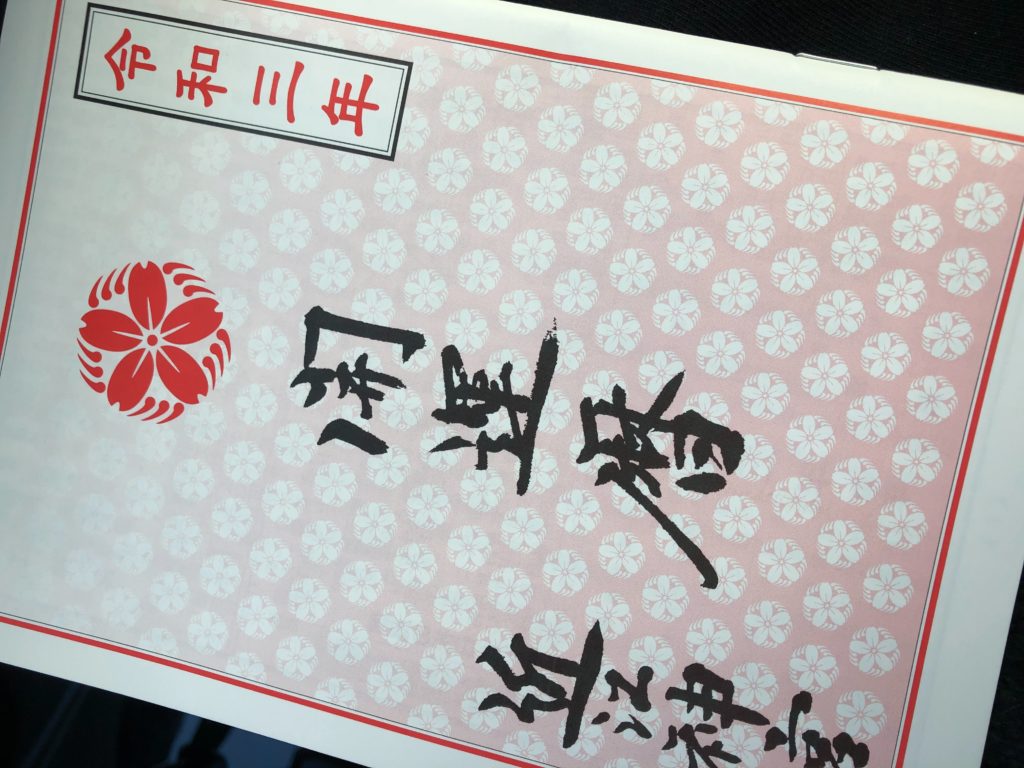 令和三年
開運暦
近江神宮